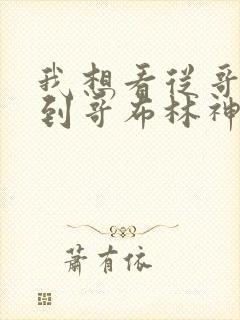 我想看从哥
到哥布林神
萧有依